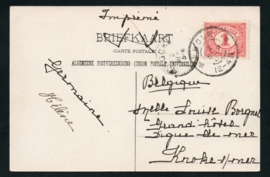 Imprimé
BRIEFKAART
CARTE POSTALE
ALGEMEENE POSTVEREENIGING (UNION POSTALE UNIVERSELLE)
Belgique
Germaine
Hélène
Melle Louise Borgnet
Grand hôtel
Digue de mer
Knocke s/mer